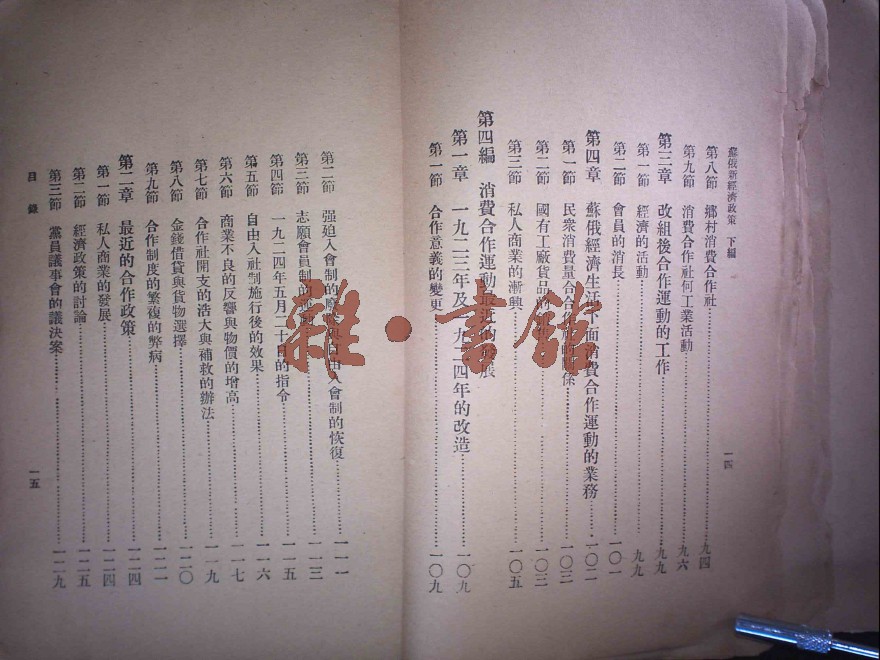 蘇俄新經濟政策 下編
第八節 鄉村消費合作社 九四
第九節 消費合作社何工業活動 九六
第三章 改組後合作運動的工作 九九
第一節 經濟的活動 九九
第二節 會員的消長 一〇一
第四章 蘇俄經濟生活下面消費合作運動的業務 一〇二
第一節 民衆消費量合合作社的關係 一〇三
第二節 國有工廠貨品的 一〇三
第三節 私人商業的漸興 一〇五
第四編 消費合作運動最近的發展
第一章 一九二三年及一九二四年的改造 一〇九
第一節 合作意義的變更 一〇九
一四
第二節 强迫入會制的廢與自由入會制的恢復 一一一
第三節 志願會員制的 一一三
第四節 一九二四年五月二十日的指令 一一五
第五節 自由入社制施行後的效果 一一六
第六節 商業不良的反響與物價的增高 一一七
第七節 合作社開支的浩大與補救的辦法 一一九
第八節 金錢借貸與貨物選擇 一二〇
第九節 合作制度的繁複的弊病 一二二
第二章 最近的合作政策 一二四
第一節 私人商業的發展 一二四
第二節 經濟政策的討論 一二五
第三節 黨員議事會的議決案 一二九
目錄
一五
雜·書館